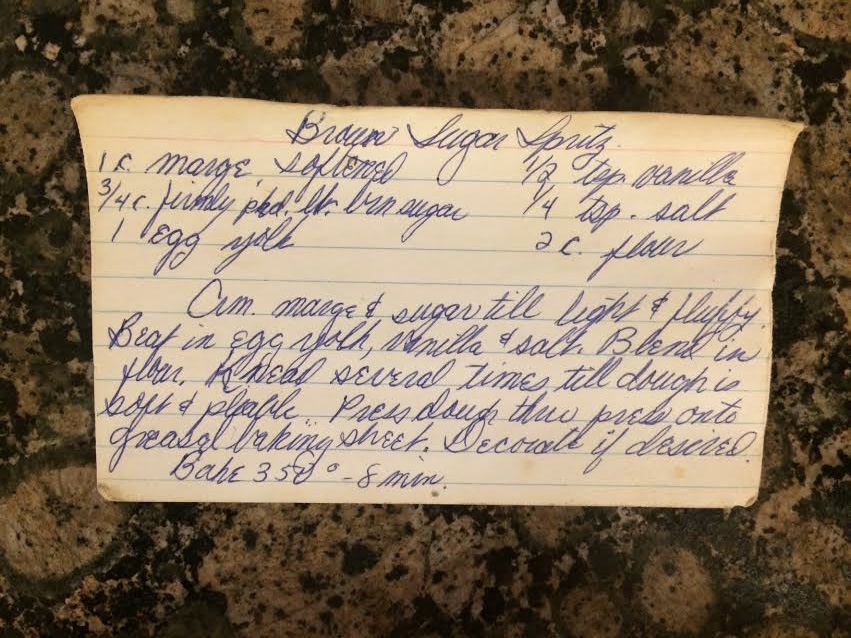 Brown Sugar Spritz
1 c. marge, softened 1/2 tsp. vanilla
3/4 c. firmly pkd. lt. brn sugar 1/4 tsp. salt
1 egg yolk 2 c. flour
Crm. marge & sugar till light & fluffy.
Beat in egg yolk, vanilla & salt. Blend in
flour. Knead several times till dough is
soft & pliable. Press dough thru press onto
greased baking sheet. Decorate if desired.
Bake 350° - 8 min.